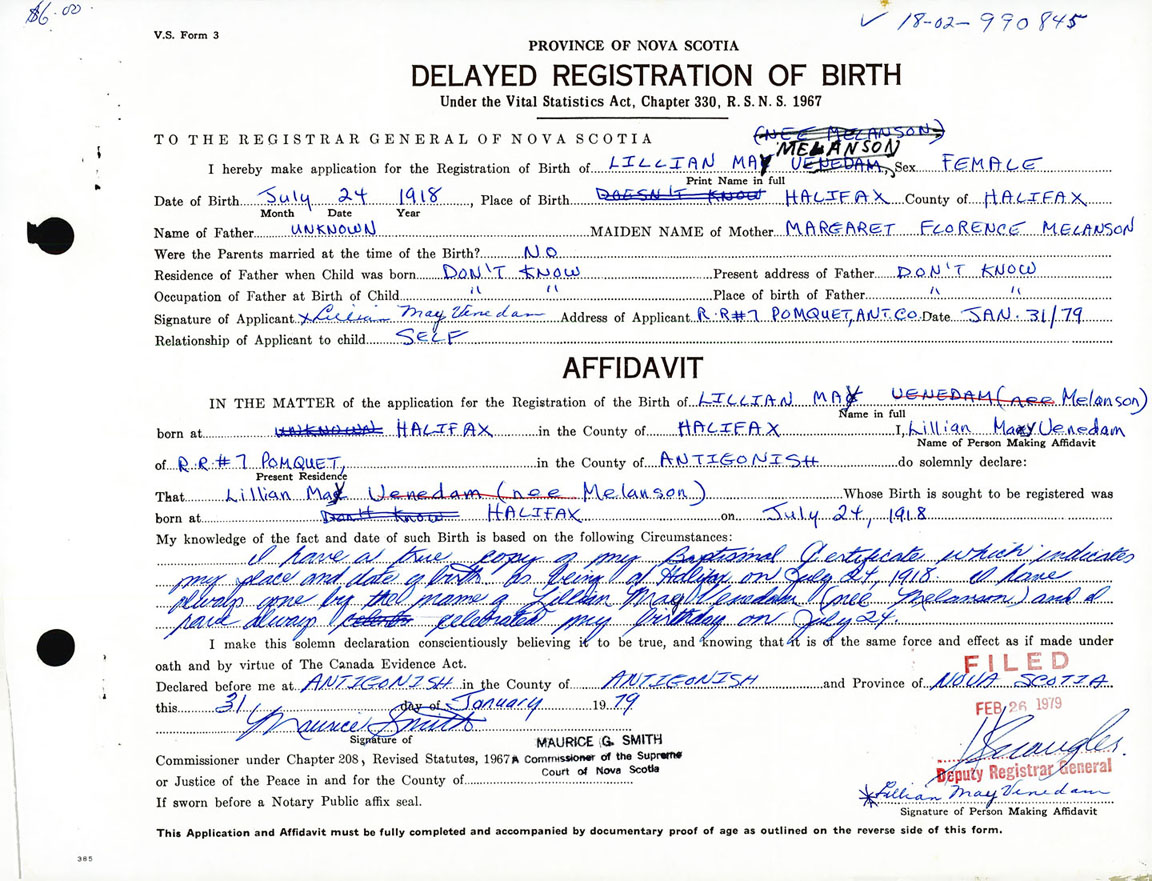 $6.00
✓ 18-02-990845
V.S. Form 3
PROVINCE OF NOVA SCOTIA
DELAYED REGISTRATION OF BIRTH
Under the Vital Statistics Act, Chapter 330, R. S. N. S. 1967
TO THE REGISTRAR GENERAL OF NOVA SCOTIA (NEE MELANSON)
MELANSON
I hereby make application for the Registration of Birth of LILLIAN MAY VENEDAM, Sex FEMALE
Print Name in full
Date of Birth July 24 1918, Place of Birth DOESN'T KNOW HALIFAX County of HALIFAX
Month Date Year
Name of Father UNKNOWN MAIDEN NAME of Mother MARGARET FLORENCE MELANSON
Were the Parents married at the time of the Birth? NO
Residence of Father when Child was born DON'T KNOW Present address of Father DON'T KNOW
Occupation of Father at Birth of Child " " Place of birth of Father " "
Signature of Applicant x Lillian May Venedam Address of Applicant R.R#7 POMQUET, ANT.CO. Date JAN. 31/79
Relationship of Applicant to child SELF
AFFIDAVIT
IN THE MATTER of the application for the Registration of the Birth of LILLIAN MAY VENEDAM (nee Melanson)
Name in full
born at UNKNOWN HALIFAX in the County of HALIFAX I, Lillian May Venedam
Name of Person Making Affidavit
of R.R.#7 POMQUET, in the County of ANTIGONISH do solemnly declare:
Present Residence
That Lillian May Venedam (nee Melanson) Whose Birth is sought to be registered was
born at Don't Know HALIFAX on July 24, 1918
My knowledge of the fact and date of such Birth is based on the following Circumstances:
I have a true copy of my Baptismal Certificate which indicates
my place and date of birth as being of Halifax on July 24, 1918. I have
always gone by the name of Lillian May Venedam (nee Melanson) and I
have always celebrated my birthday on July 24.
I make this solemn declaration conscientiously believing it to be true, and knowing that it is of the same force and effect as if made under
oath and by virtue of The Canada Evidence Act.
FILED
Declared before me at ANTIGONISH in the County of ANTIGONISH and Province of NOVA SCOTIA
this 31 day of January 1979
FEB 26 1979
Maurice Smith
Signature of
MAURICE G. SMITH
Commissioner under Chapter 208, Revised Statutes, 1967 A Commissioner of the Supreme
Court of Nova Scotia
or Justice of the Peace in and for the County of
Deputy Registrar General
If sworn before a Notary Public affix seal.
Lillian May Venedam
Signature of Person Making Affidavit
This Application and Affidavit must be fully completed and accompanied by documentary proof of age as outlined on the reverse side of this form.
385